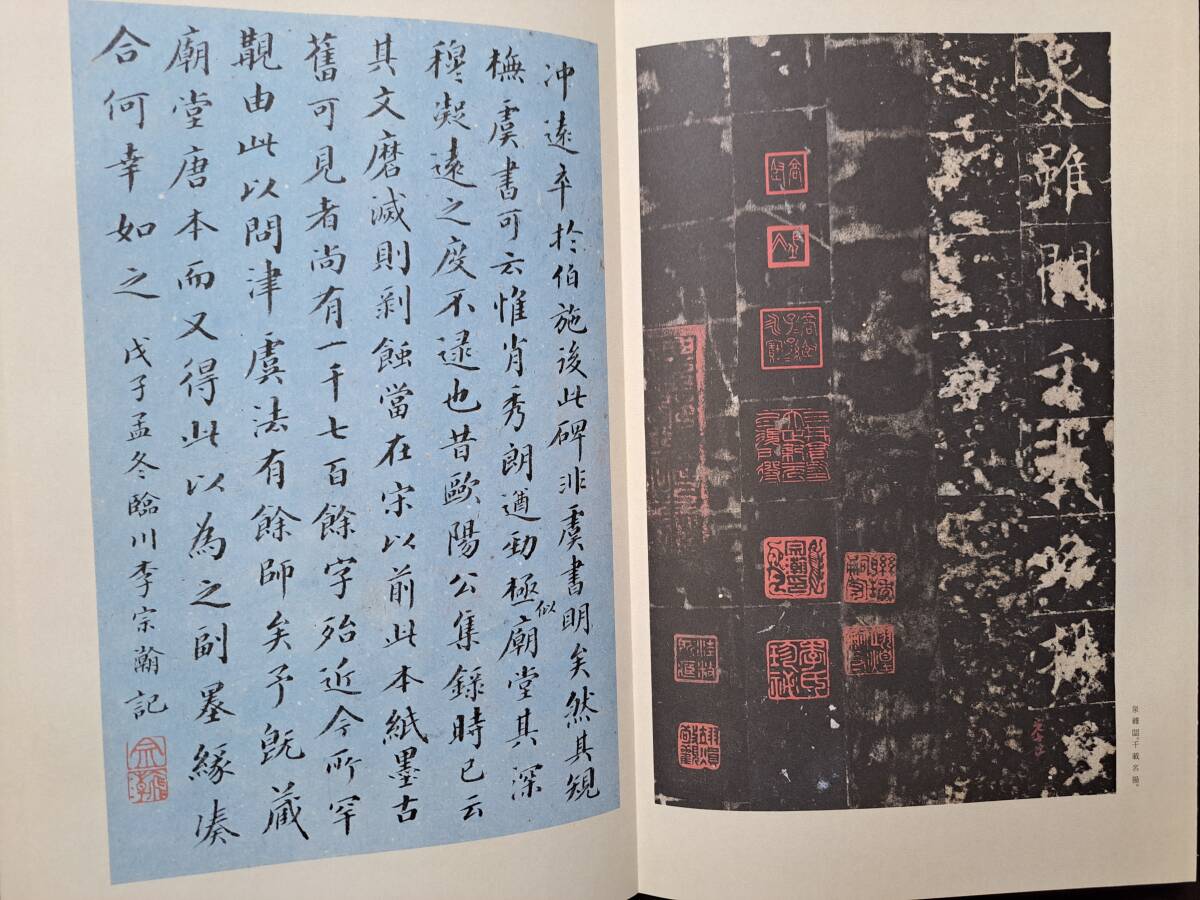 泉雖閟千載名揚
李氏珍祕
泉雖閟。千載名揚。
冲遠卒於伯施後此碑非虞書明矣然其規
橅虞書可云惟肖秀朗遒勁極似廟堂其深
穆凝遠之度不逮也昔歐陽公集錄時已云
其文磨滅則剥蝕當在宋以前此本紙墨古
舊可見者尚有一千七百餘字殆近今所罕
覯由此以問津虞法有餘師矣予旣藏
廟堂唐本而又得此以為之副墨緣湊
合何幸如之 戊子孟冬臨川李宗瀚記